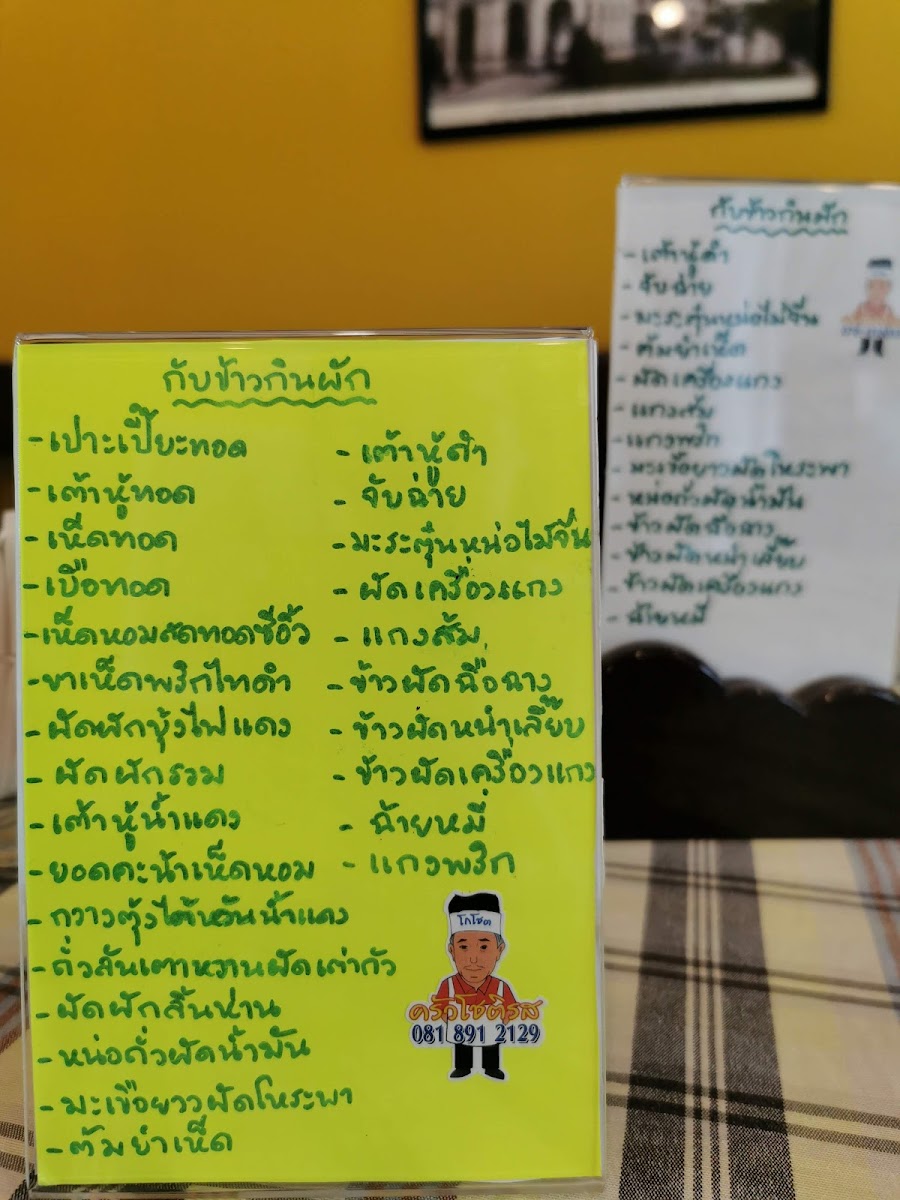 กับข้าวกินผัก
- เปาะเปี๊ยะทอด
- เต้าหู้ทอด
- เห็ดทอด
- เบือทอด
- เห็ดหอมสดทอดซีอิ้ว
- ขาเห็ดพริกไทดำ
- ผัดผักบุ้งไฟแดง
- ผัดผักรวม
- เต้าหู้น้ำแดง
- ยอดคะน้าเห็ดหอม
- กวางตุ้งไต้หวันน้ำแดง
- ถั่วลันเตาหวานผัดเกาลัด
- ผัดผักลิ้นห่าน
- หน่อถั่วผัดน้ำมัน
- มะเขือยาวผัดโหระพา
- ต้มยำเห็ด
- เต้าหู้ดำ
- จับฉ่าย
- มะระตุ๋นหน่อไม้จีน
- ผัดเครื่องแกง
- แกงส้ม
- ข้าวผัดฉือฉาง
- ข้าวผัดหนำเลี๊ยบ
- ข้าวผัดเครื่องแกง
- ฉ้ายหมี่
- แกงพริก
โกโชต
ครัวโชติรส
081 891 2129
กับข้าวกินผัก
- เต้าหู้ดำ
- จับฉ่าย
- มะระตุ๋นหน่อไม้จีน
- ต้มยำเห็ด
- ผัดเครื่องแกง
- แกงส้ม
- แกงพริก
- มะเขือยาวผัดโหระพา
- หน่อถั่วผัดน้ำมัน
- ข้าวผัดฉือฉาง
- ข้าวผัดหนำเลี๊ยบ
- ข้าวผัดเครื่องแกง
- ฉ้ายหมี่